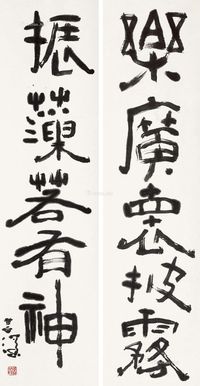 樂廣披霧
振藻若有神